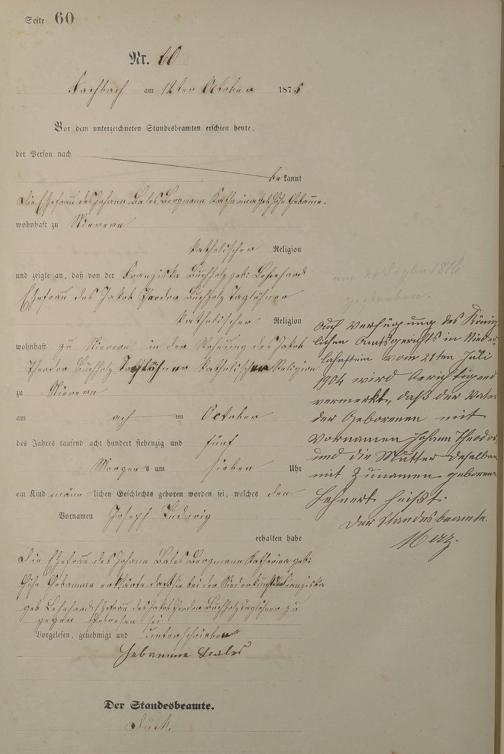 Seite 60
Nr. 60
Fachbach am 12ten October 1875
Vor dem unterzeichneten Standesbeamten erschien heute,
der Person nach
bekannt
Die Ehefrau des Johann Bergmann Katharina geb. Hebamme
wohnhaft zu Nievern
katholischer Religion
und zeigte an, daß von der Franziska Buchholz geb.
Ehefrau des Jakob Theodor Buchholz Taglöhner
katholischer Religion
wohnhaft zu Nievern in der Wohnung des Jakob
Theodor Buchholz Taglöhner katholischer Religion
zu Nievern
am ten October
des Jahres tausend acht hundert siebenzig und fünf
Morgens um sieben Uhr
ein Kind männlichen Geschlechts geboren worden sei, welches den
Vornamen Joseph Ludwig
erhalten habe
Die Ehefrau des Johann Bergmann Katharina geb.
Hebamme erklärte daß sie bei der Niederkunft der Franziska
geb. Ehefrau des Jakob Theodor Buchholz Taglöhner zu
gegen gewesen sei
Vorgelesen, genehmigt und unterschrieben
Hebamme
Der Standesbeamte.
1876
gestorben.
Auf Verfügung des König
lichen Amtsgerichts in Nieder
lahnstein vom 21ten Juli
1904 wird berichtigend
vermerkt, daß der Vater
der Geborenen mit
Vornamen Johann Theodor
und die Mutter desselben
mit Zunamen geborene
Lehnert heißt.
Der Standesbeamte
Merz.